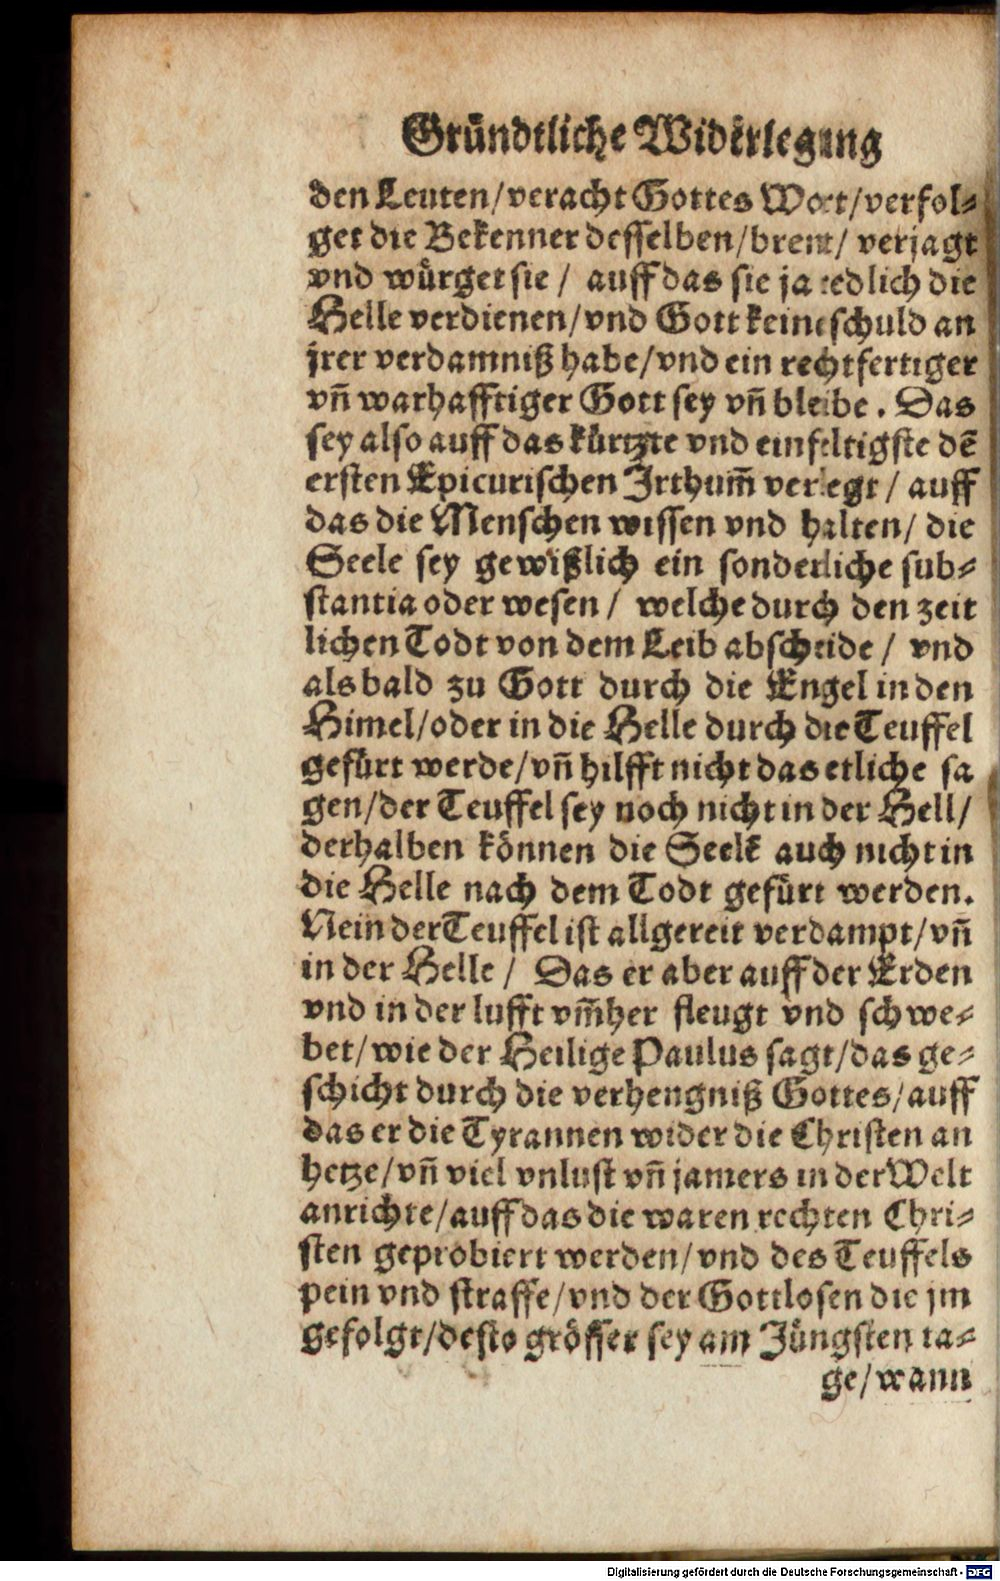 Gründtliche Widerlegung
den Leuten/veracht Gottes Wort/verfol⸗
get die Bekenner desselben/brent/ verjagt
vnd würget sie / auff das sie ja redlich die
Helle verdienen/vnd Gott keine schuld an
jrer verdamniß habe/vnd ein rechtfertiger
vñ warhafftiger Gott sey vñ bleibe. Das
sey also auff das kürtzte vnd einfeltigste dē
ersten Epicurischen Irthum̃ verlegt / auff
das die Menschen wissen vnd halten/ die
Seele sey gewißlich ein sonderliche sub⸗
stantia oder wesen / welche durch den zeit
lichen Todt von dem Leib abscheide / vnd
als bald zu Gott durch die Engel in den
Himel/oder in die Helle durch die Teuffel
gefürt werde/vñ hilfft nicht das etliche sa
gen/der Teuffel sey noch nicht in der Hell/
derhalben können die Seelē auch nicht in
die Helle nach dem Todt gefürt werden.
Nein der Teuffel ist allgereit verdampt/vñ
in der Helle / Das er aber auff der Erden
vnd in der lufft vm̃her fleugt vnd schwe⸗
bet/wie der Heilige Paulus sagt/das ge⸗
schicht durch die verhengniß Gottes/auff
das er die Tyrannen wider die Christen an
hetze/vñ viel vnlust vñ jamers in der Welt
anrichte/auff das die waren rechten Chri⸗
sten geprobiert werden/vnd des Teuffels
pein vnd straffe/vnd der Gottlosen die jm
gefolgt/desto grösser sey am Jüngsten ta⸗
ge/wann
Digitalisierung gefördert durch die Deutsche Forschungsgemeinschaft - DFG